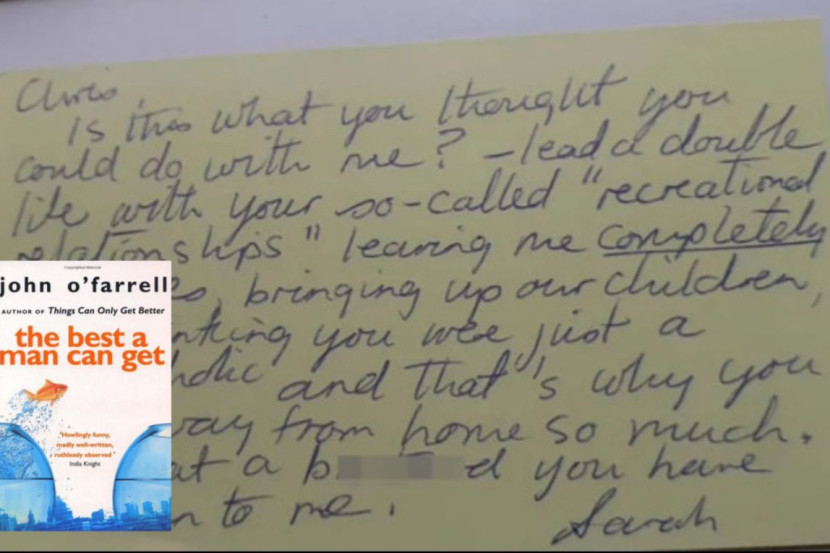 Chris,
Is this what you thought you
could do with me? – lead a double
life with your so-called "recreational
relationships" leaving me completely
bringing up our children,
nking you were just a
holic' and that's why you
way from home so much.
at a b d you have
n to me.
Sarah
john o'farrell
AUTHOR OF Things Can Only Get Better
the best a
man can get
'Howlingly funny,
madly well-written,
ruthlessly observed'
India Knight